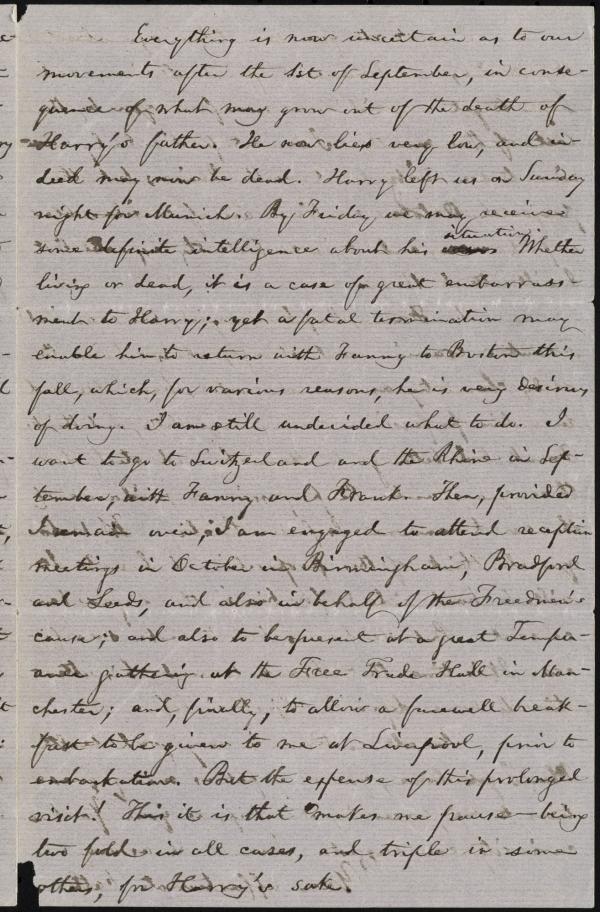 Everything is now uncertain as to our
movements after the 1st of September, in conse-
quence of what may grow out of the death of
Harry's father. He now lies very low, and in-
deed may now be dead. Harry left us on Sunday
night for Munich. By Friday we may receive
some definite intelligence about his situation. Whether
living or dead, it is a case of great embarrass-
ment to Harry; yet a fatal termination may
enable him to return with Fanny to Boston this
fall, which, for various reasons, he is very desirous
of doing. I am still undecided what to do. I
want to go to Switzerland and the Rhine in Sep-
tember, with Fanny and Frank. Then, provided
I remain over, I am engaged to attend reception
meetings in October in Birmingham, Bradford
and Leeds, and also in behalf of the Freedmen's
cause; and also to be present at a great Temper-
ance gathering at the Free Trade Hall in Man-
chester; and, finally, to allow a farewell break-
fast to be given to me at Liverpool, prior to
embarkation. But the expense of this prolonged
visit! This it is that makes me pause—being
two fold in all cases, and triple in some
others, for Harry's sake.